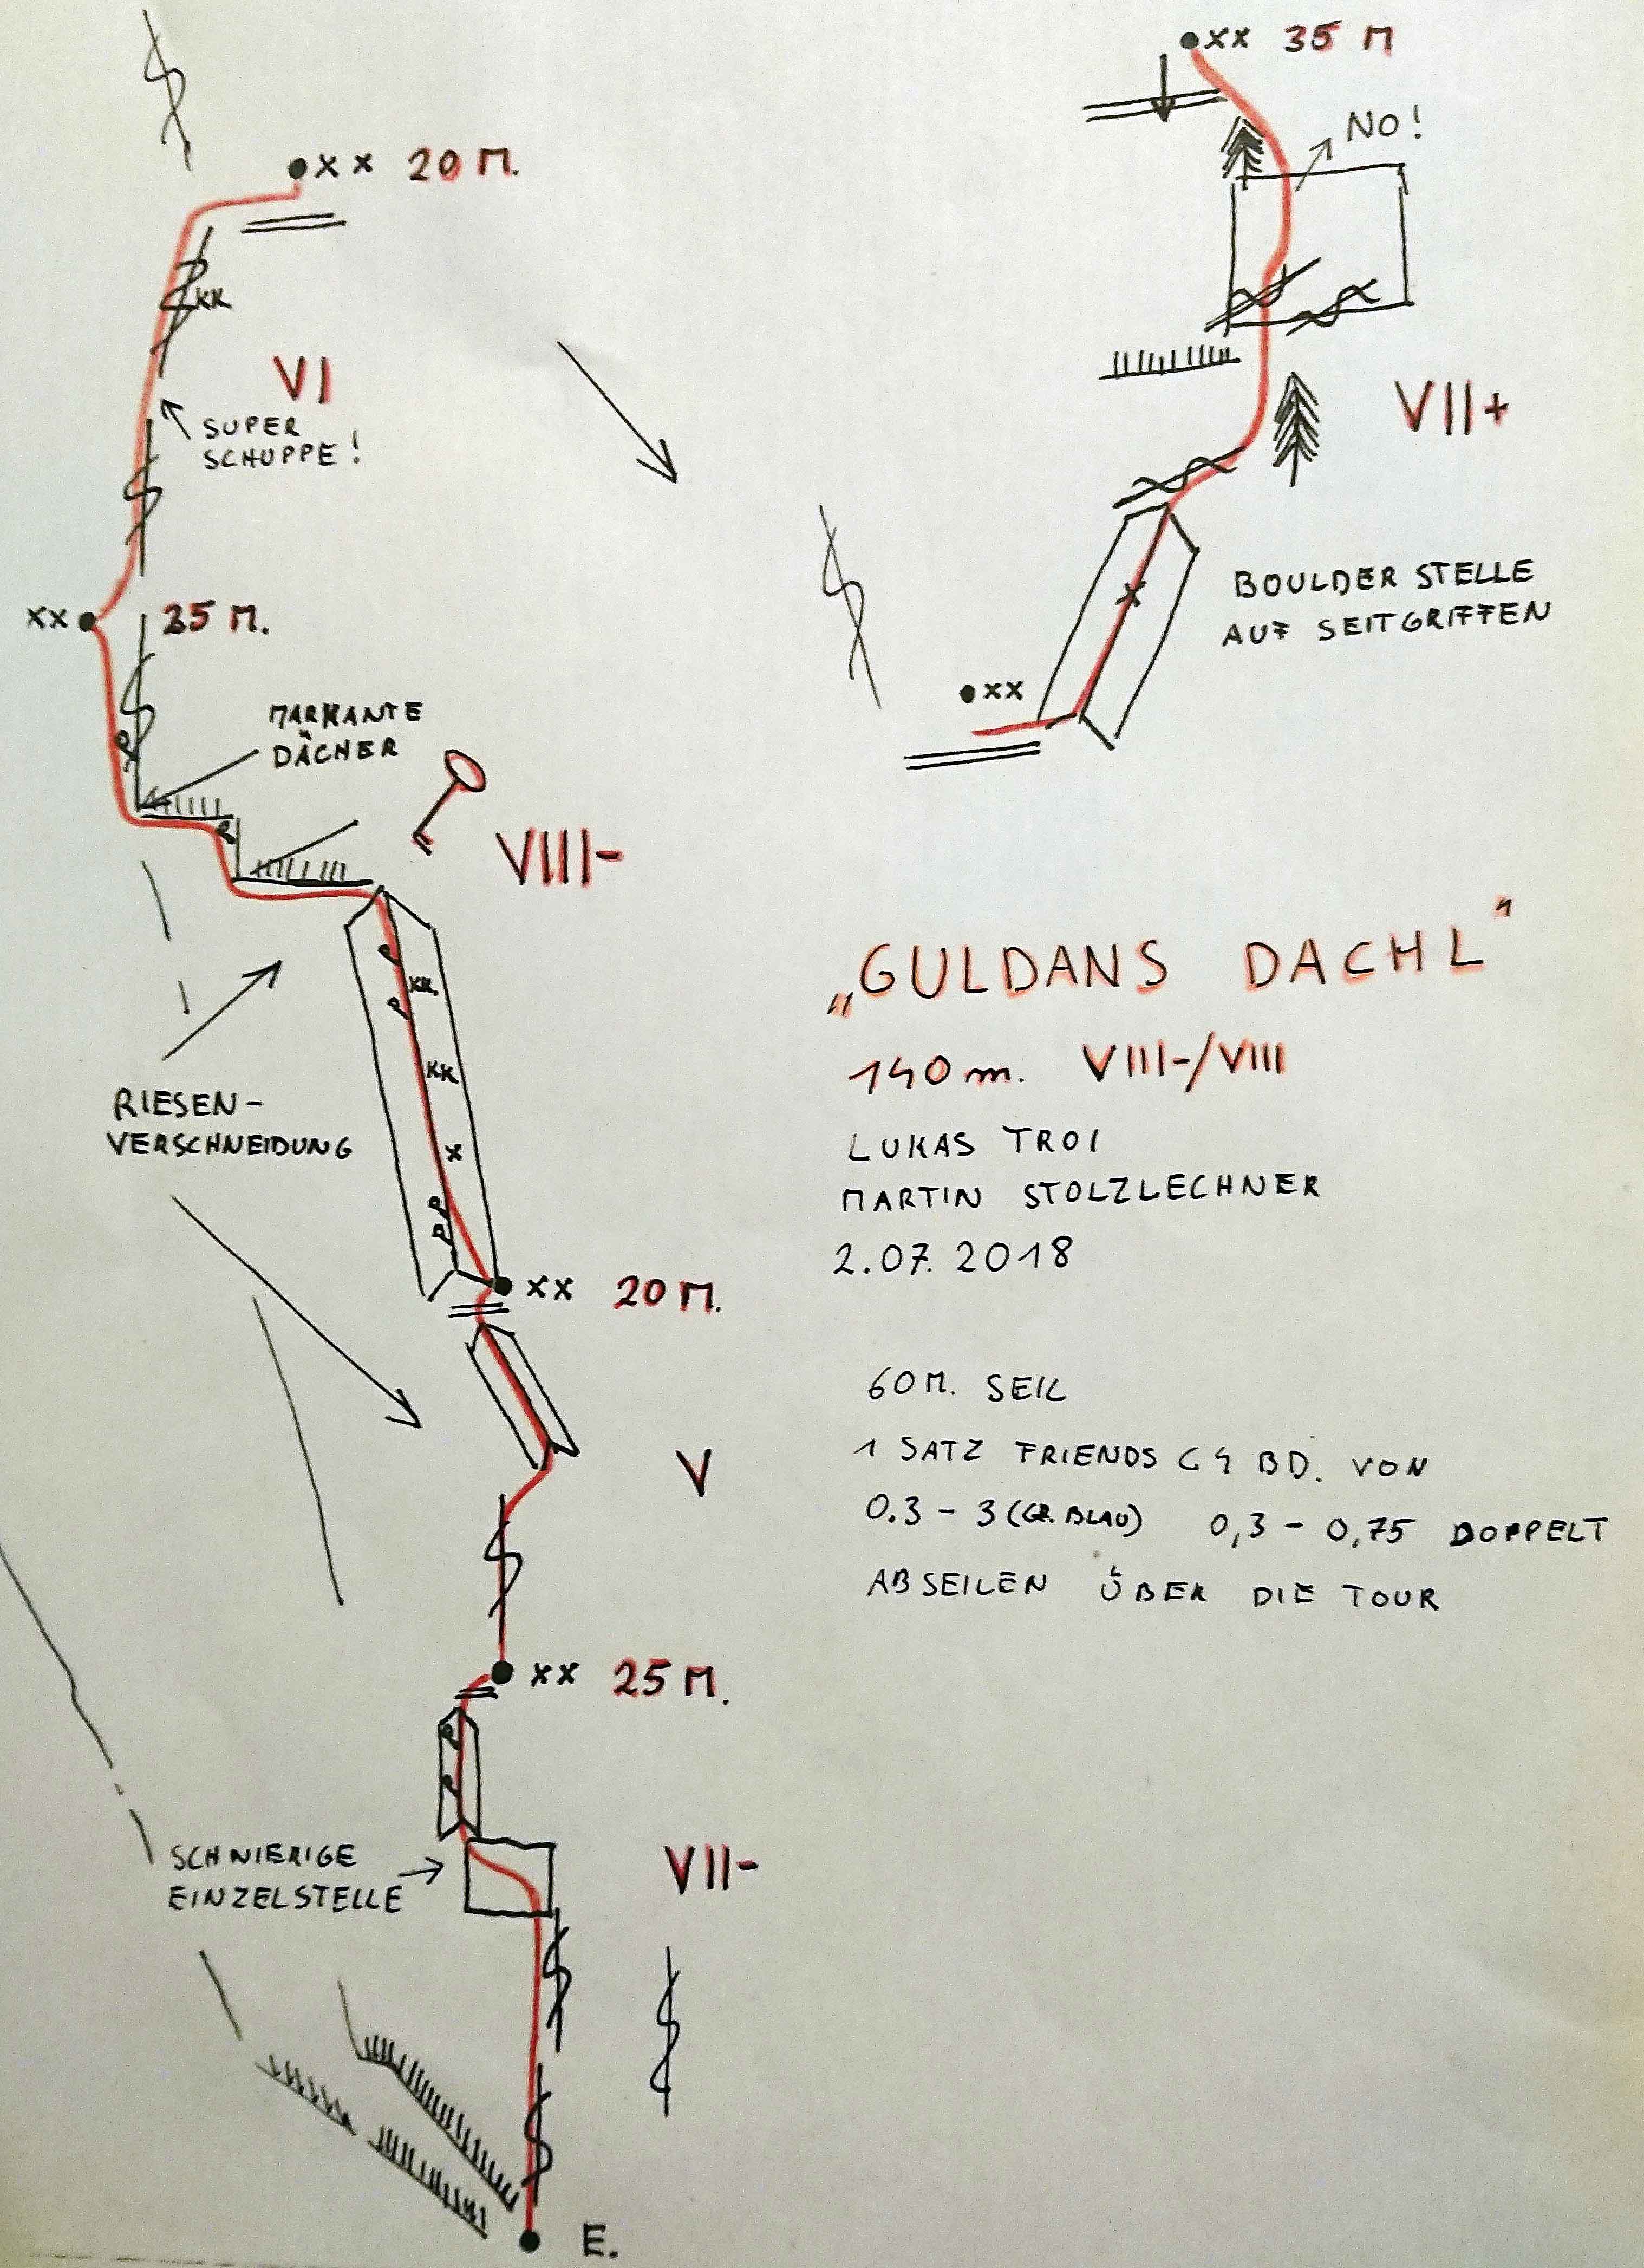 XX 20 M.
KK
VI
SUPER
SCHUPPE!
XX 35 M.
MARKANTE
DÄCHER
VIII-
KK.
KK.
X
RIESEN-
VERSCHNEIDUNG
XX 20 M.
V
XX 25 M.
SCHWIERIGE
EINZELSTELLE
VII-
E.
XX 35 M
NO!
VII+
X
BOULDER STELLE
AUF SEITGRIFFEN
XX
„GULDANS DACHL"
140 m. VIII-/VIII
LUKAS TROI
MARTIN STOLZLECHNER
2.07.2018
60 M. SEIL
1 SATZ FRIENDS C4 BD. VON
0.3 - 3 (GR. BLAU) 0,3 - 0,75 DOPPELT
ABSEILEN ÜBER DIE TOUR